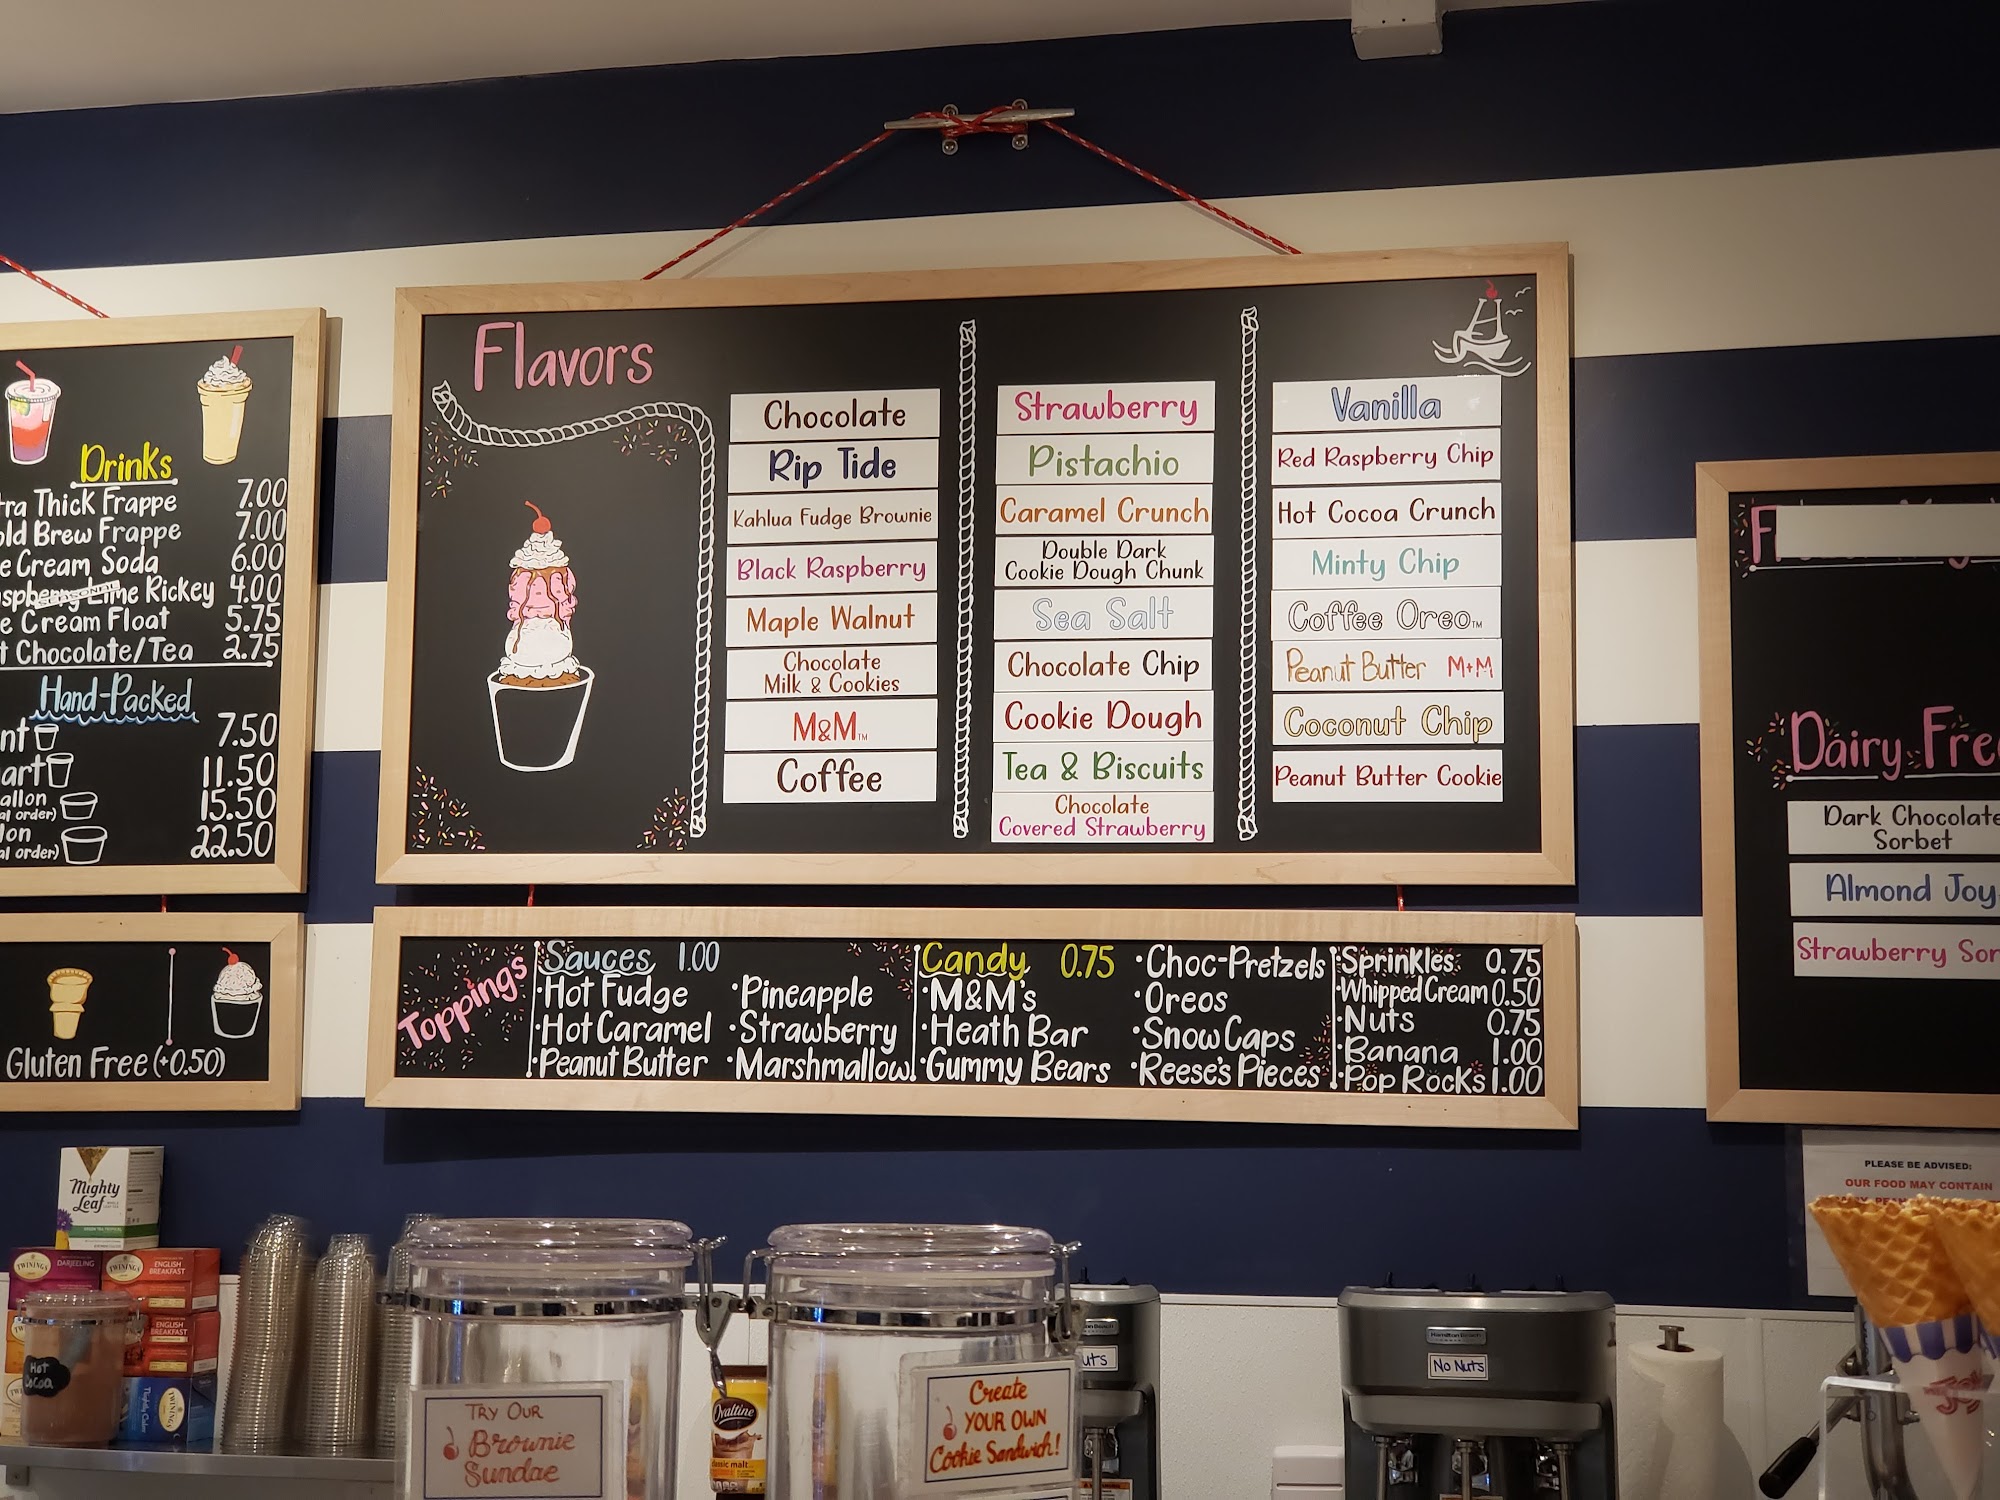 Drinks
Thick Frappe 7.00
Brew Frappe 7.00
Cream Soda 6.00
Rickey 4.00
Cream Float 5.75
Chocolate/Tea 2.75
Hand-Packed
7.50
11.50
15.50
order)
22.50
order)
Gluten Free (+0.50)
Flavors
Chocolate
Rip Tide
Kahlua Fudge Brownie
Black Raspberry
Maple Walnut
Chocolate
Milk & Cookies
M&M™
Coffee
Strawberry
Pistachio
Caramel Crunch
Double Dark
Cookie Dough Chunk
Sea Salt
Chocolate Chip
Cookie Dough
Tea & Biscuits
Chocolate
Covered Strawberry
Vanilla
Red Raspberry Chip
Hot Cocoa Crunch
Minty Chip
Coffee Oreo™
Peanut Butter M+M
Coconut Chip
Peanut Butter Cookie
Toppings
Sauces 1.00
•Hot Fudge
•Hot Caramel
•Peanut Butter
•Pineapple
•Strawberry
•Marshmallow
Candy 0.75
•M&M's
•Heath Bar
•Gummy Bears
•Choc-Pretzels
•Oreos
•Snow Caps
•Reese's Pieces
•Sprinkles 0.75
•Whipped Cream 0.50
•Nuts 0.75
•Banana 1.00
•Pop Rocks 1.00
Dairy Free
Dark Chocolate
Sorbet
Almond Joy
Strawberry
PLEASE BE ADVISED:
OUR FOOD MAY CONTAIN
Mighty
Leaf
TWININGS
DARJEELING
TWININGS
ENGLISH
BREAKFAST
ENGLISH
BREAKFAST
TWININGS
Hot
Cocoa
TRY OUR
Brownie
Sundae
Ovaltine
classic malt
Create
YOUR OWN
Cookie Sandwich!
Hamilton Beach
No Nuts